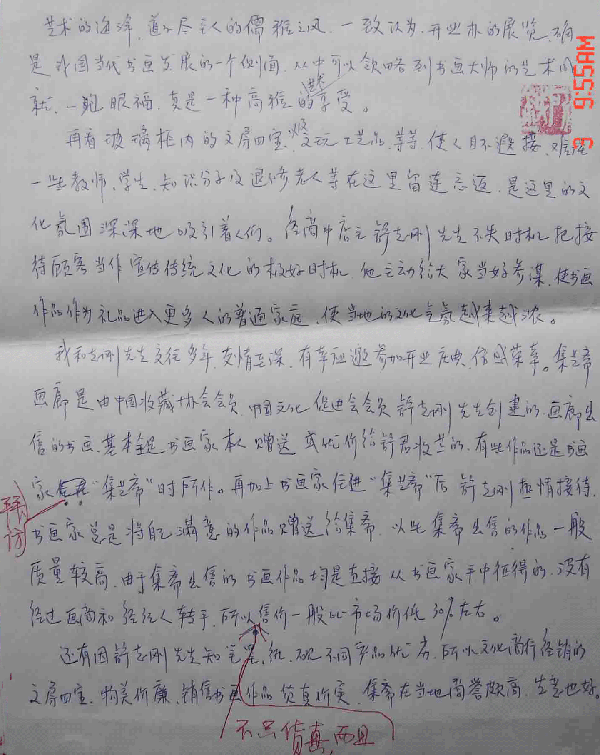 艺术的海洋，直不尽主人的儒雅之风，一致认为，开业办的展览，确
是我国当代书画发展的一个侧面，从中可以领略到书画大师的艺术风
采，一饱眼福，真是一种高雅的享受。
再看玻璃柜内的文房四宝，文玩工艺品，等等，使人目不遐接，难怪
一些教师、学生、知识分子及退修老人等在这里留连忘返，是这里的文
化氛围深深地吸引着人们。店主许志刚先生不失时机把接
待顾客当作宣传传统文化的极好时机，他主动给大家当好参谋，使书画
作品作为礼品进入更多人的普通家庭，使当地的文化气氛越来越浓。
我和志刚先生交往多年，友情至深，有幸应邀参加开业庆典，倍感荣幸。集兰斋
画廊是由中国收藏协会会员、中国文化促进会会员许志刚先生创建的，画廊出
售的书画，基本全是书画家本人赠送或优价给许君收藏的，有些作品还是书画
家在“集兰斋”时所作。再加上书画家走进“集兰斋”后许志刚热情接待，
探访
书画家总是将自己满意的作品赠送给集斋，以此集斋出售的作品一般
质量较高，由于集斋出售的书画作品均是直接从书画家手中征得的，没有
经过画商和经纪人转手，所以售价一般比市场价低30%左右。
还有因许志刚先生知笔、墨、纸、砚不同产品优劣，所以文化商行经销的
文房四宝，物美价廉，销售书画作品货真价实，集斋在当地商誉颇高，生意也好。
不只货真，而且
9 9:55AM